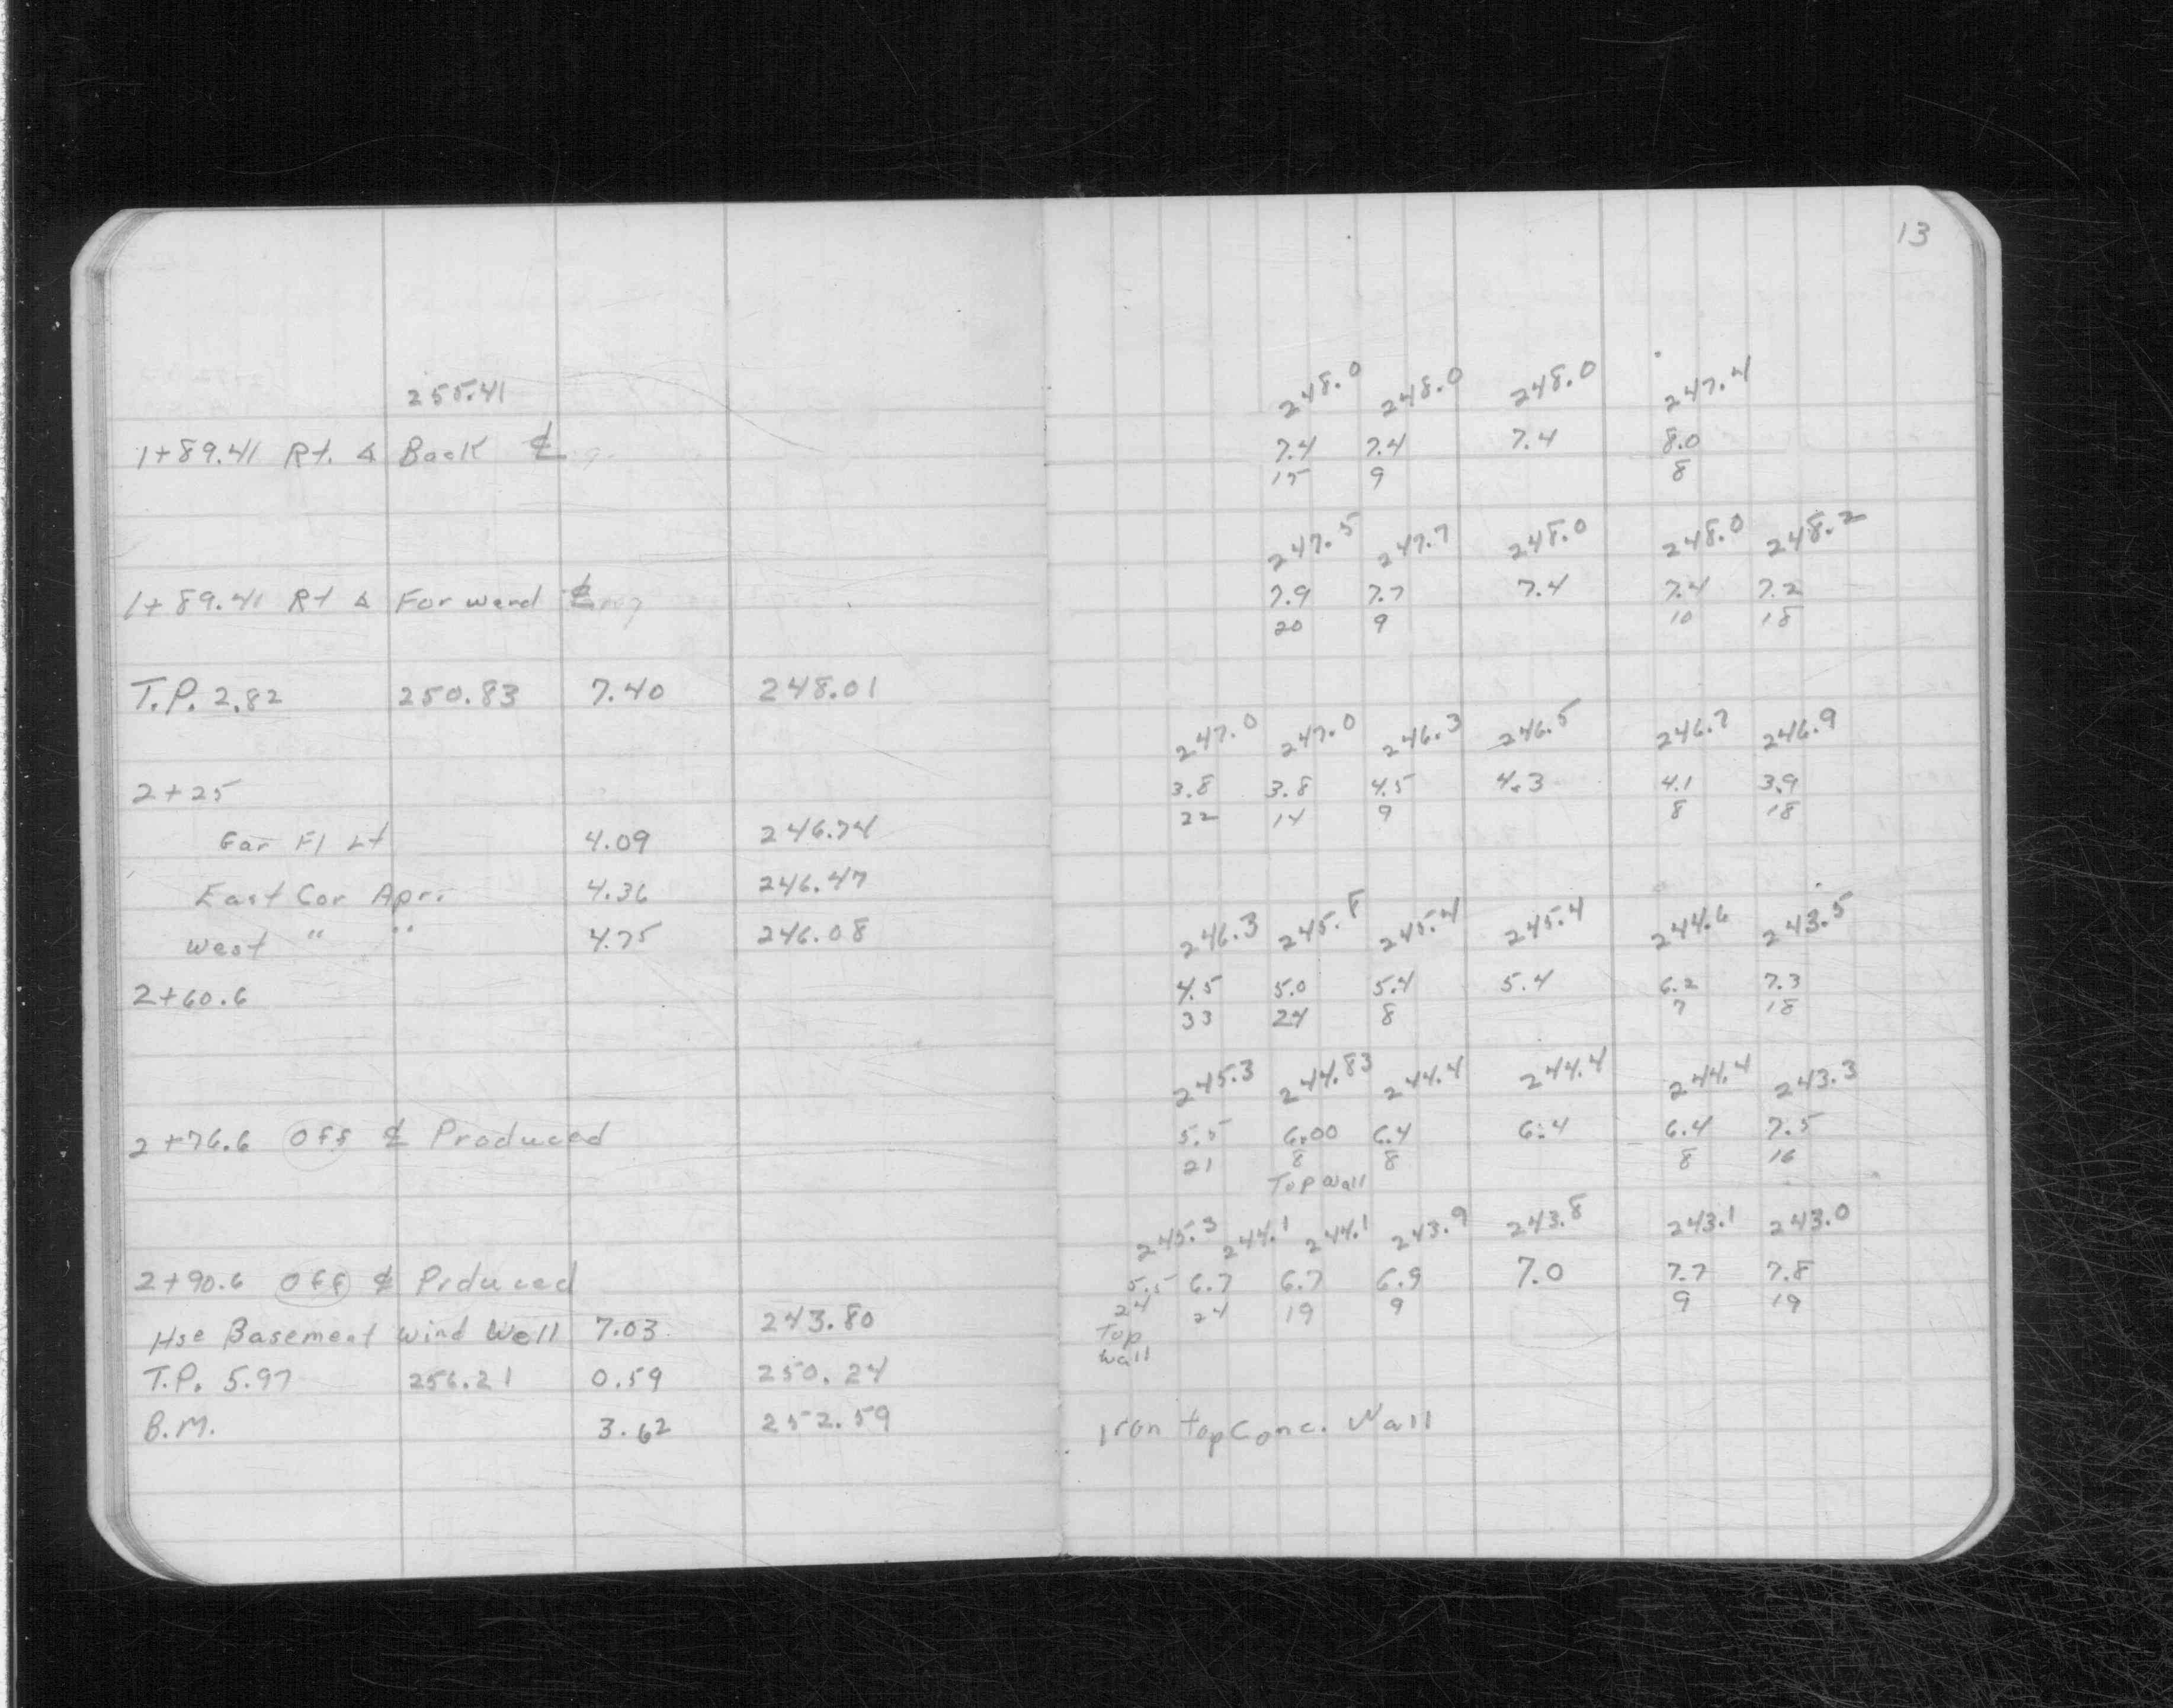 13
255.41
1+89.41 Rt. ∆ Back ℄
1+89.41 Rt ∆ Forward ℄
T.P. 2.82 250.83 7.40 248.01
2+25
Gar Fl Lt 4.09 246.74
East Cor Apr. 4.36 246.47
West " " 4.75 246.08
2+60.6
2+76.6 Off ℄ Produced
2+90.6 Off ℄ Prduced
Hse Basement Wind Well 7.03 243.80
T.P. 5.97 256.21 0.59 250.24
B.M. 3.62 252.59
248.0 248.0 248.0 247.4
7.4 7.4 7.4 8.0
15 9 8
247.5 247.7 248.0 248.0 248.2
7.9 7.7 7.4 7.4 7.2
20 9 10 18
247.0 247.0 246.3 246.5 246.7 246.9
3.8 3.8 4.5 4.3 4.1 3.9
22 14 9 8 18
246.3 245.8 245.4 245.4 244.6 243.5
4.5 5.0 5.4 5.4 6.2 7.3
33 24 8 7 18
245.3 244.83 244.4 244.4 244.4 243.3
5.5 6.00 6.4 6.4 6.4 7.5
21 8 8 8 16
Top Wall
245.3 244.1 244.1 243.9 243.8 243.1 243.0
5.5 6.7 6.7 6.9 7.0 7.7 7.8
24 24 19 9 9 19
Top
Wall
Iron top Conc. Wall